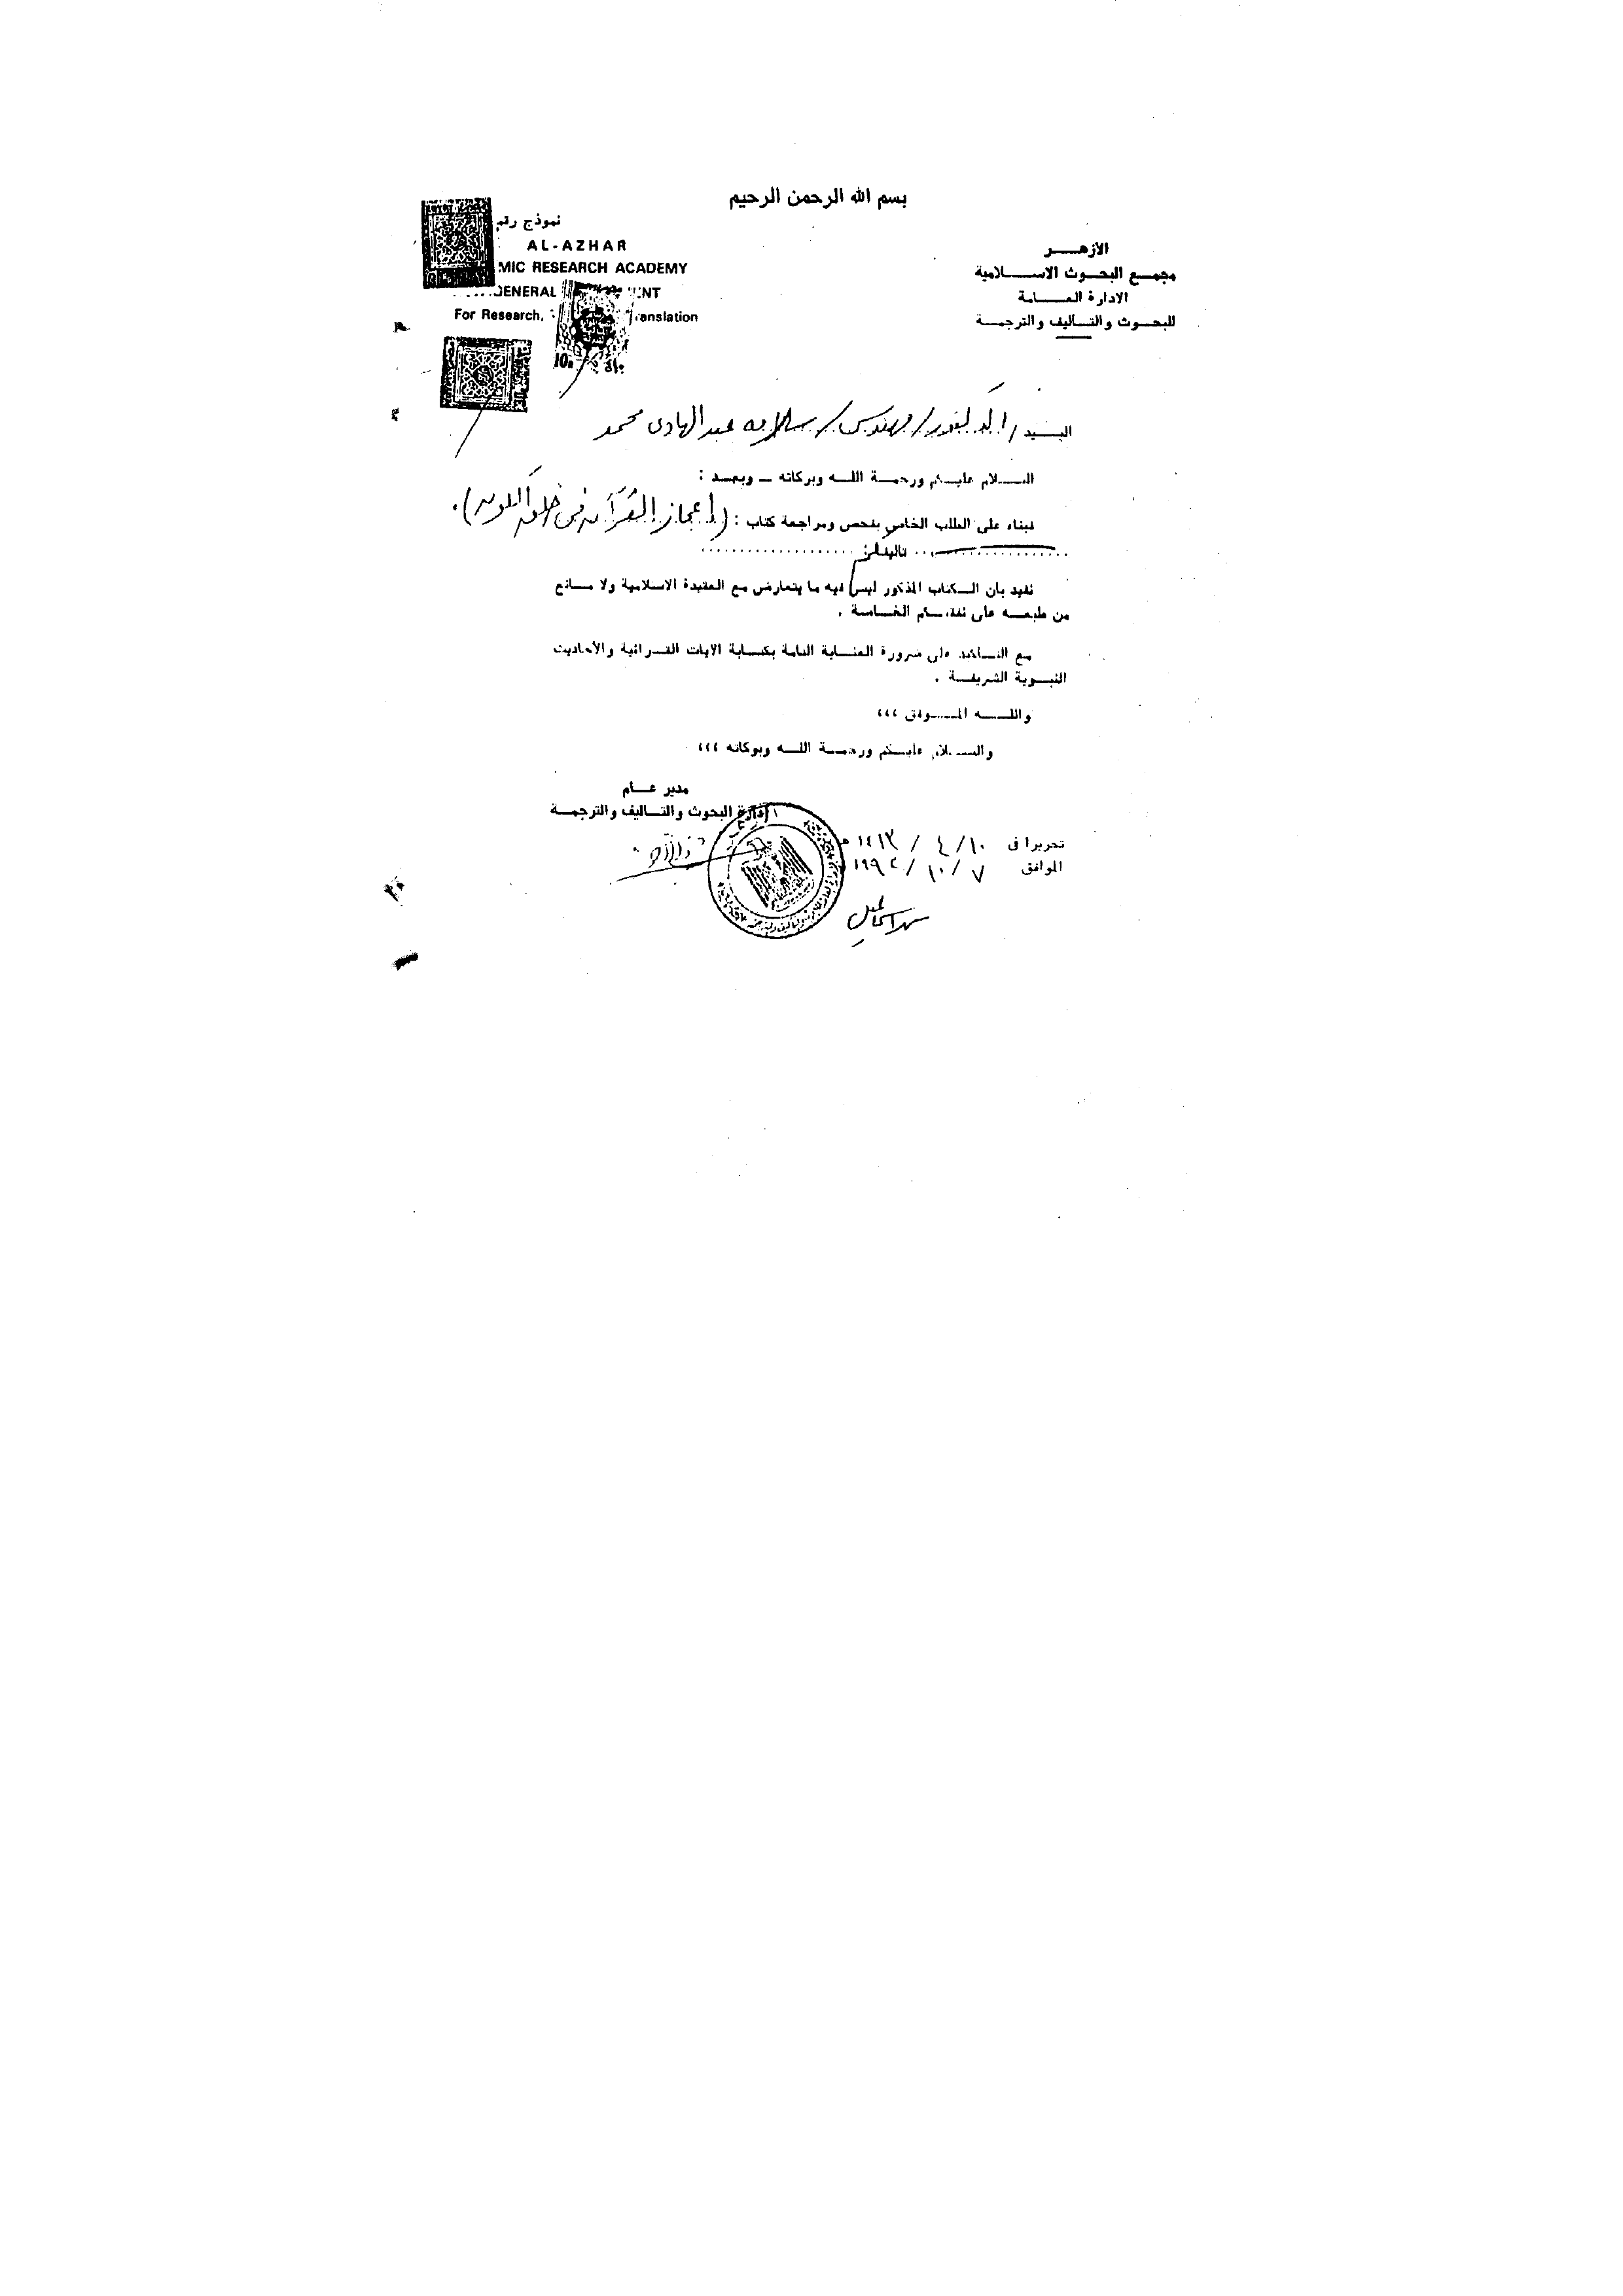 بسم الله الرحمن الرحيم
الازهـــر
مجمـع البحـوث الاســـلامية
الادارة العـــامة
للبحـوث والتـاليف والترجمـة
نموذج رقم
AL-AZHAR
MIC RESEARCH ACADEMY
GENERAL
For Research, Translation
السـيد / الدكتور / مهندس / سلامه عبد الهادى محمد
الســـلام عليـكم ورحمـة اللـه وبركاته ــ وبعـد :
فبناء على الطلب الخاص بفحص ومراجعة كتاب : ( اعجاز القرآن فى خلق الكون ) .
تاليف
نفيد بان الـكتاب المذكور ليس فيه ما يتعارض مع العقيدة الاسلامية ولا مـانع
من طبعـه على نفقتـكم الخـاصة .
مع التـاكيد على ضرورة العنـاية التامة بكتـابة الايات القـرآنية والأحاديث
النبـوية الشريفـة .
واللـــه المــوفق ،،،
والسـلام عليـكم ورحمـة اللـه وبركاته ،،،
مدير عـام
ادارة البحوث والتـاليف والترجمـة
تحريرا فى ١٠ / ٤ / ١٤١٣ هـ
الموافق ٧ / ١٠ / ١٩٩٢